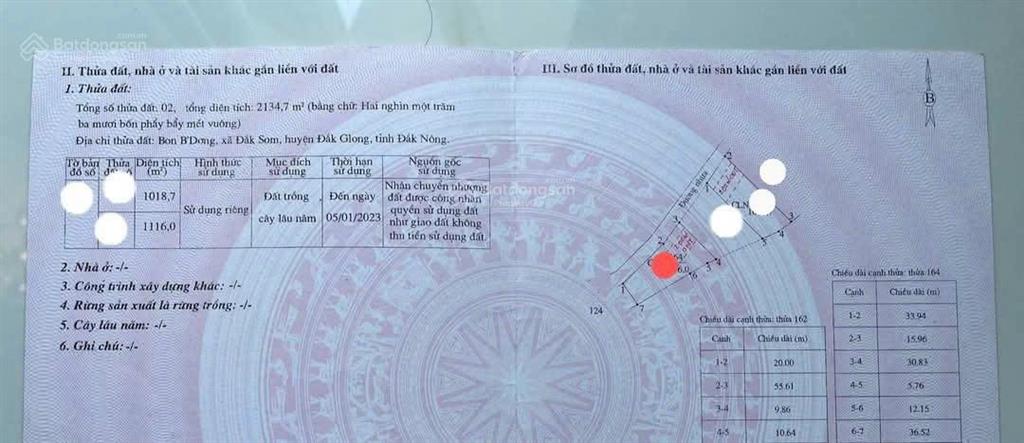 Batdongsan
.com.vn
II. Thửa đất, nhà ở và tài sản khác gắn liền với đất
1. Thửa đất:
Tổng số thửa đất: 02, tổng diện tích: 2134,7 m² (bằng chữ: Hai nghìn một trăm
ba mươi bốn phẩy bảy mét vuông)
Địa chỉ thửa đất: Bon B'Dơng, xã Đăk Som, huyện Đắk Glong, tỉnh Đắk Nông.
Tờ bản đồ số
Thửa
Diện tích (m²)
Hình thức sử dụng
Mục đích sử dụng
Thời hạn sử dụng
Nguồn gốc sử dụng
1018,7
1116,0
Sử dụng riêng
Đất trồng cây lâu năm
Đến ngày 05/01/2023
Nhận chuyển nhượng
đất được công nhận
quyền sử dụng đất
như giao đất không
thu tiền sử dụng đất.
2. Nhà ở: -/-
3. Công trình xây dựng khác: -/-
4. Rừng sản xuất là rừng trồng: -/-
5. Cây lâu năm: -/-
6. Ghi chú: -/-
III. Sơ đồ thửa đất, nhà ở và tài sản khác gắn liền với đất
B
Đường nhựa
CLN
124
Chiều dài cạnh thửa: thửa 162
Cạnh Chiều dài (m)
1-2 20.00
2-3 55.61
3-4 9.86
4-5 10.64
Chiều dài cạnh thửa: thửa 164
Cạnh Chiều dài (m)
1-2 33.94
2-3 15.96
3-4 30.83
4-5 5.76
5-6 12.15
6-7 36.52